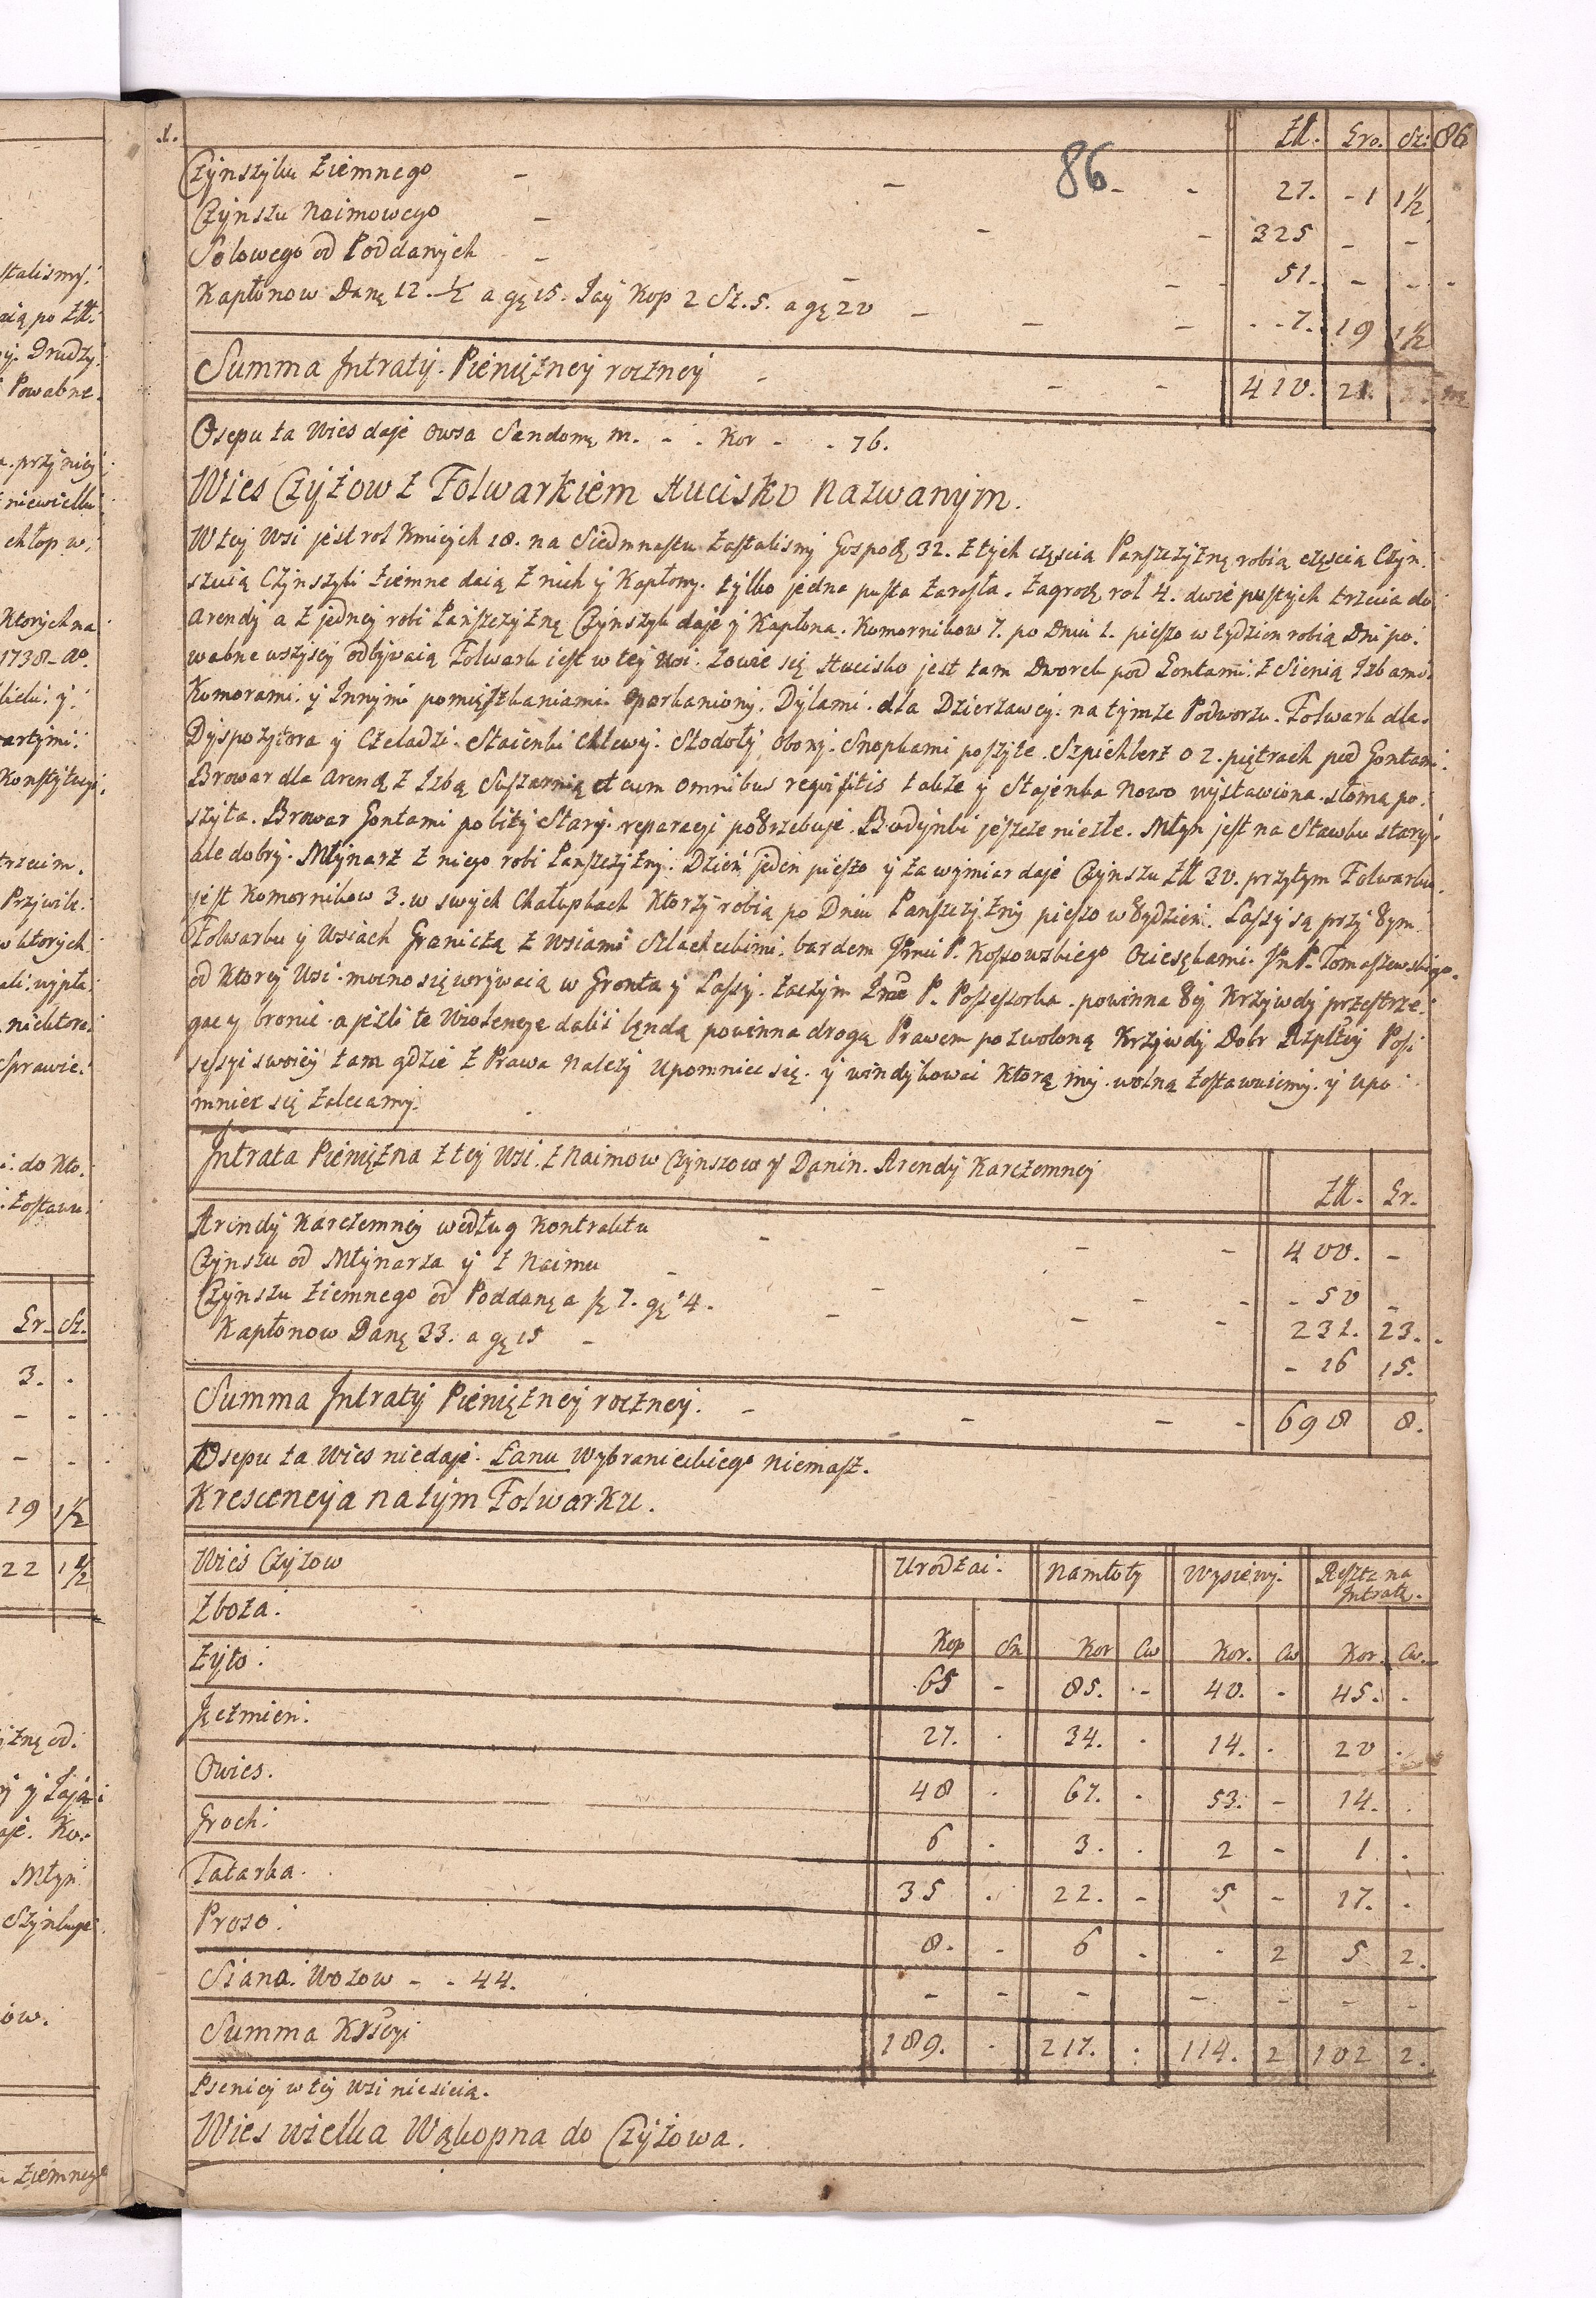 1.
Zlł. Gro. Sz: 86
86
Czynszyku Ziemnego - - - - 27. - 1 1½
Czynszu Naimowego - - - 325 - -
Solowego od Poddanych - - - 51. - -
Kapłonow Danę 12. ½ a gę 15. Jay Kop 2 Sz. 5. a gę 20 - - - 7. 19 1½
Summa Intraty Pieniężney roczney - - - 410. 21.
Osepu ta Wies daje Owsa Sandomę m. - . Kor - . 76.
Wies Czyżow z Folwarkiem Hucisko nazwanym.
W tey Wsi jest rol Kmicych 18. na Siedmnastu zastalismy Gospodę 32. z tych częscią Panszczyznę robią częscią Czyn:
szuią Czynszyki Ziemne daią z nich y Kapłony. tylko jedna pusta zarosła. Zagrodę rol 4. dwie pustych trzecia do
Arendy a z jedney robi Panszczyznę Czynszyk daje y Kapłona. Komornikow 7. po Dniu 1. pieszo w tydzien robią Dni po:
wabne wszyscy odbywaią Folwark iest w tey Wsi. Zowie się Hucisko jest tam Dworek pod Gontami. z Sienią Izbami
Komorami. y Innymi pomięszkaniami oparkaniony. Dylami. dla Dzierzawcy. na tymze Podworzu. Folwark dla.
Dyspozytora y Czeladzi. Staienki chlewy. Stodoły obory. Snopkami poszyte. Szpichlerz o 2. piętrach pod Gontami:
Browar dla Arendę z Izbą Suszarnią et cum omnibus requisitis takze y Stajenka Nowo wystawiona. słomą po:
szyta. Browar Gontami pobity Stary. reparacyi potrzebuje. Budynki jeszcze niezłe. Młyn jest na Stawku stary
ale dobry. Młynarz z niego robi Panszczyzny. Dzień jeden pieszo y za wymiar daje Czynszu Zlł 30. przytym Folwarku.
jest Komornikow 3. w swych Chałupkach Ktorzy robią po Dniu Panszczyzny pieszo w tydzień. Lassy są przy tym.
Folwarku y Wsiach Graniczą z Wsiami Szlacheckimi. bardem Jmci P. Kossowskiego Ociesękami. Jm P. Tomaszewskiego.
od Ktorey Wsi. mocno się worywaią w Gronta y Lassy. Zaczym Jmć P. Possessorka. powinna tey Krzywdy przestrze:
gac y bronic. a jezli te Wiolencye daliż będą powinna drogą Prawem pozwoloną Krzywdy Dobr Rzplltey Poss:
sessyi swoiey tam gdzie z Prawa należy Upomniec się. y windykowac Ktorą my. wolną zostawuiemy. y upo:
mniec się zalecamy.
Intrata Pieniężna z tey Wsi. z Naimow Czynszow y Danin. Arendy Karczemney
Zlł. Gr.
Arendy Karczemney według Kontraktu - - - 400. -
Czynszu od Młynarza y z Naimu - - - - 50 -
Czynszu Ziemnego od Poddanę a fę 7. gę 4. - - - 231. 23.
Kapłonow Danę 33. a gę 15 - - 16 15.
Summa Intraty Pieniężney roczney. - - - - 698 8.
Osepu ta Wies niedaje. Łanu Wybranieckiego niemasz.
Krescencya na tym Folwarku.
Wieś Czyżow Urodzai: Namłoty Wysiewy. Reszta na Intratę.
Zboża:
Kop Sn Kor Cw Kor. Cw Kor. Cw.
Żyto: 65 - 85. - 40. - 45. -
Jęczmień. 27. . 34. . 14. . 20 .
Owies. 48 . 67. . 53. - 14. .
Groch: 6 . 3. . 2 - 1 .
Tatarka. 35 . 22. - 5 - 17. .
Proso: 8. - 6 . . 2 5 2.
Siana. Wozow - - 44. - - - - - - -
Summa Krscyi 189. . 217. : 114. 2 102 2.
Psenicy w tey Wsi niesieią.
Wies wielka Wąkopna do Czyżowa.